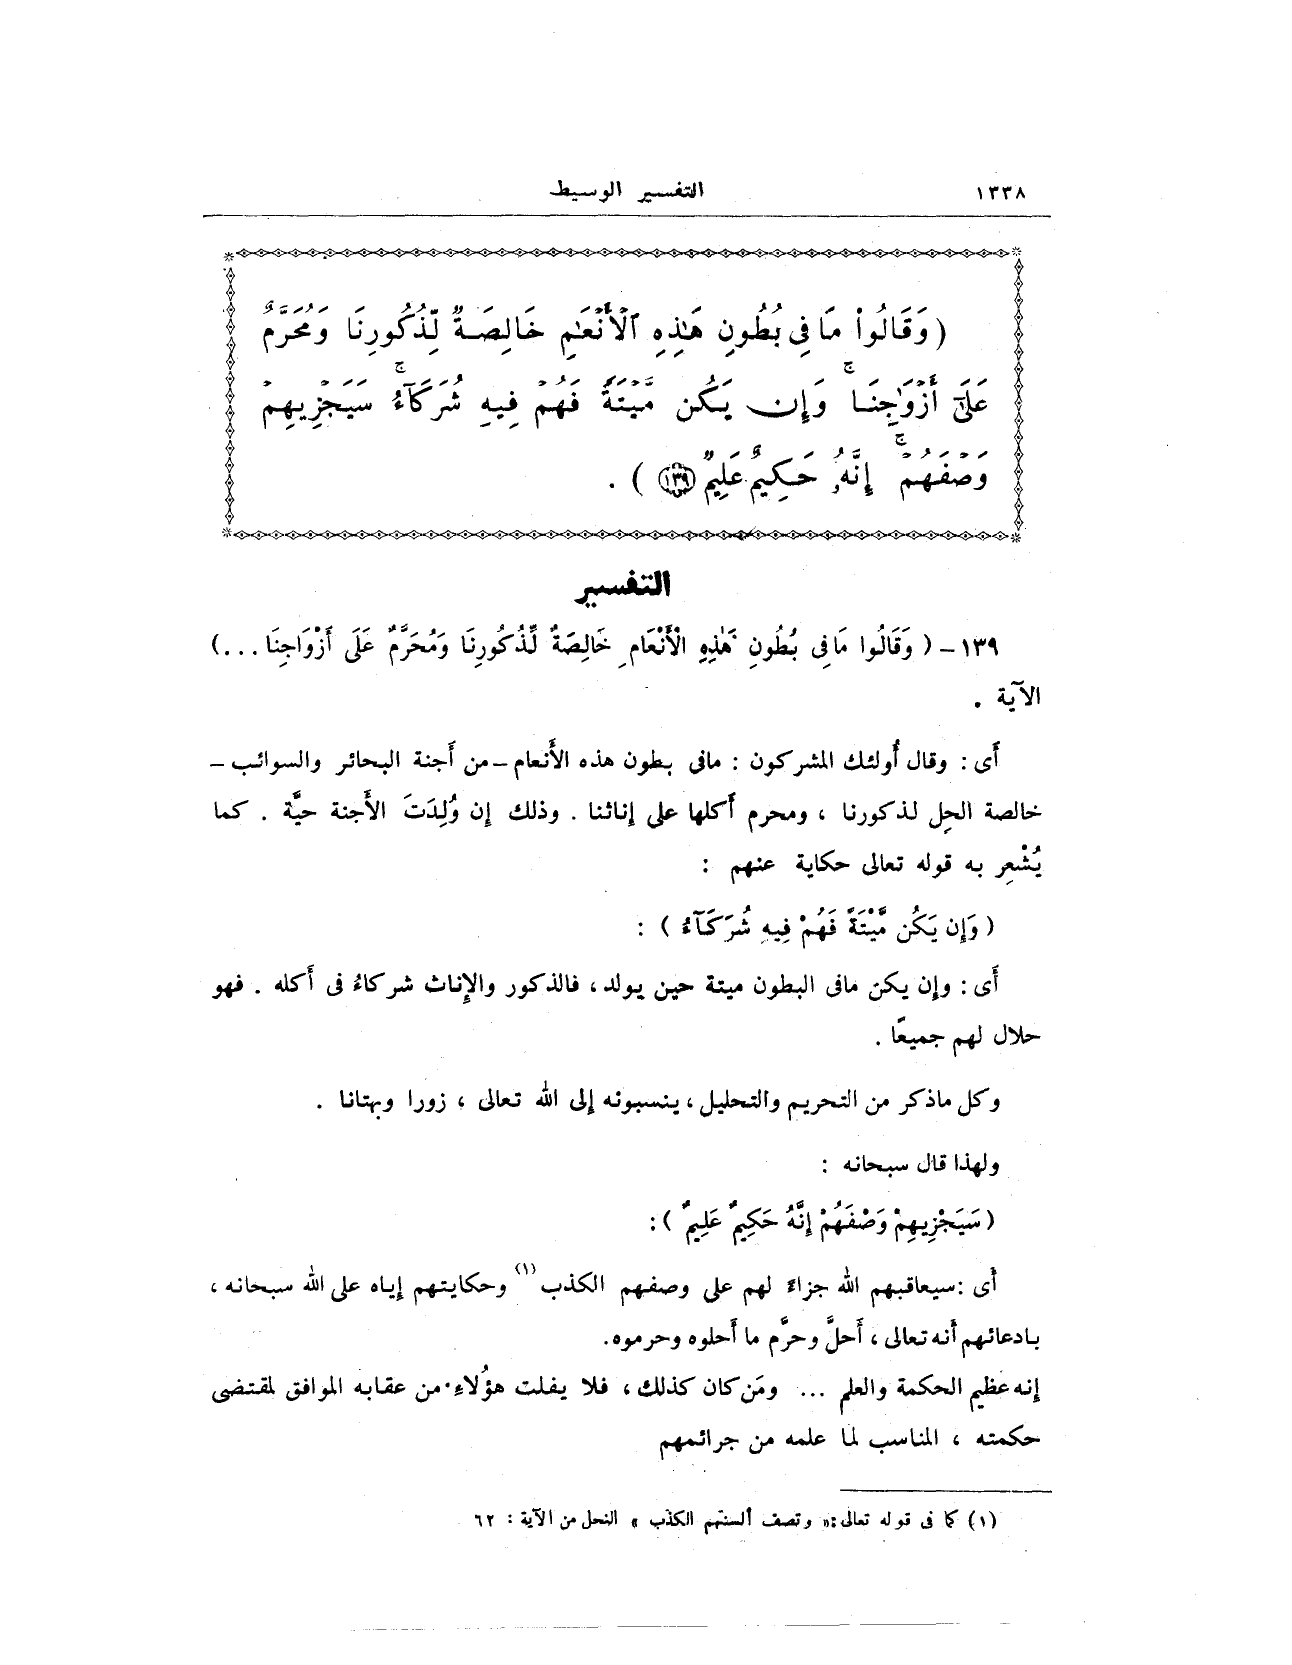 ١٣٣٨ التفسير الوسيط
( وَقَالُوا۟ مَا فِى بُطُونِ هَـٰذِهِ ٱلْأَنْعَـٰمِ خَالِصَةٌ لِّذُكُورِنَا وَمُحَرَّمٌ
عَلَىٰٓ أَزْوَٰجِنَا ۖ وَإِن يَكُن مَّيْتَةً فَهُمْ فِيهِ شُرَكَآءُ ۚ سَيَجْزِيهِمْ
وَصْفَهُمْ ۚ إِنَّهُۥ حَكِيمٌ عَلِيمٌ ﴿١٣٩﴾ ) .
التفسير
١٣٩ – ( وَقَالُوا مَا فِى بُطُونِ هَٰذِهِ الْأَنْعَامِ خَالِصَةٌ لِّذُكُورِنَا وَمُحَرَّمٌ عَلَى أَزْوَاجِنَا ...)
الآية .
أَى : وقال أُولئك المشركون : مافى بطون هذه الأَنعام – من أَجنة البحائر والسوائب –
خالصة الحِل لذكورنا ، ومحرم أَكلها على إناثنا . وذلك إن وُلِدَتَ الأَجنة حيَّة . كما
يُشْعِر به قوله تعالى حكاية عنهم :
( وَإِن يَكُن مَّيْتَةً فَهُمْ فِيهِ شُرَكَآءُ ) :
أَى : وإن يكن مافى البطون ميتة حين يولد ، فالذكور والإِناث شركاءُ فى أَكله . فهو
حلال لهم جميعًا .
وكل ماذكر من التحريم والتحليل ، ينسبونه إلى الله تعالى ، زورا وبهتانا .
ولهذا قال سبحانه :
( سَيَجْزِيهِمْ وَصْفَهُمْ إِنَّهُ حَكِيمٌ عَلِيمٌ ) :
أَى : سيعاقبهم الله جزاءً لهم على وصفهم الكذب (١) وحكايتهم إياه على الله سبحانه ،
بادعائهم أَنه تعالى ، أَحلَّ وحرَّم ما أَحلوه وحرموه .
إنه عظيم الحكمة والعلم ... ومَن كان كذلك ، فلا يفلت هؤُلاءِ من عقابه الموافق لمقتضى
حكمته ، المناسب لما علمه من جرائمهم
(١) كما فى قوله تعالى : « وتصف ألسنتهم الكذب » النحل من الآية : ٦٢